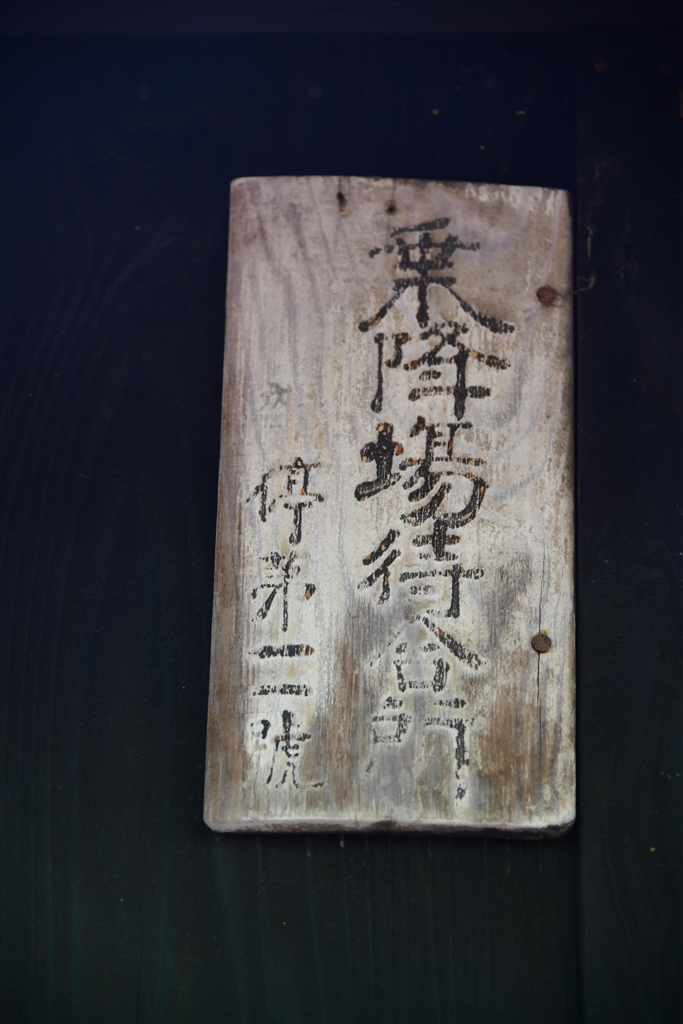 乗降場待合所
停第二號